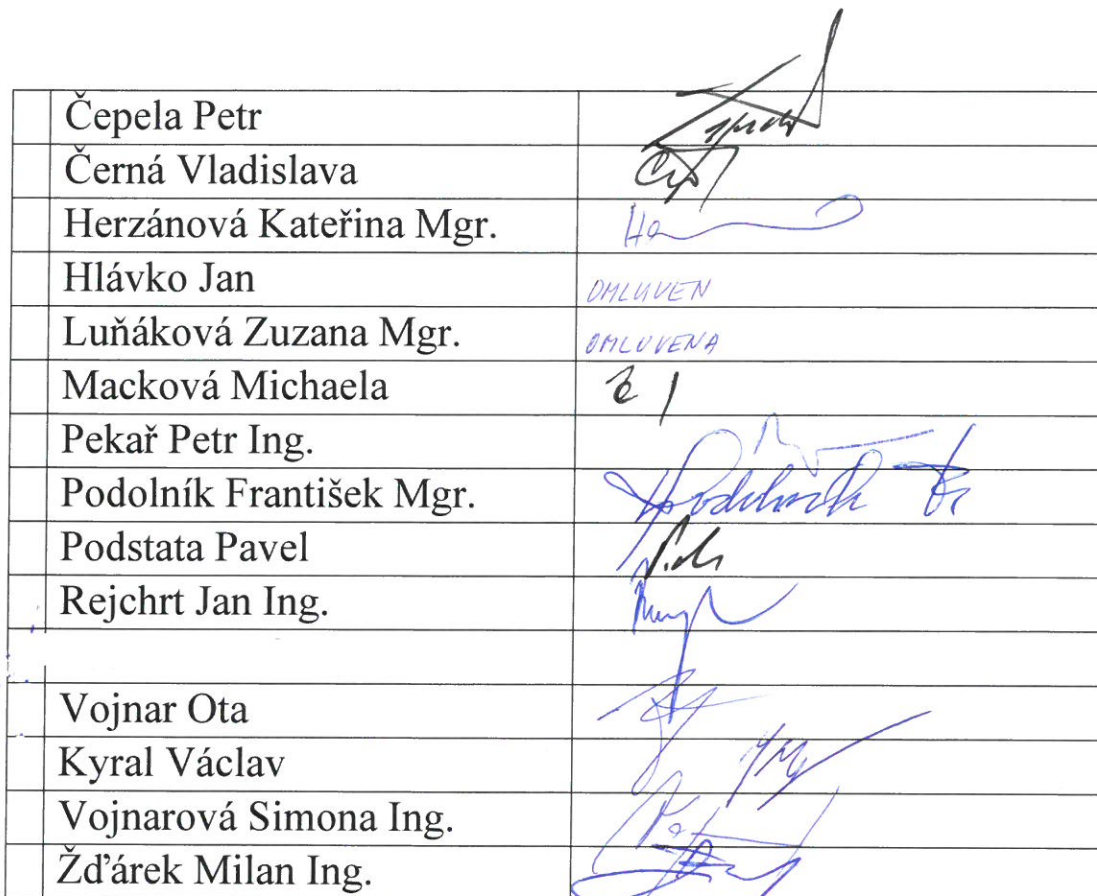 Čepela Petr
Černá Vladislava
Herzánová Kateřina Mgr.
Hlávko Jan OMLUVEN
Luňáková Zuzana Mgr. OMLUVENA
Macková Michaela
Pekař Petr Ing.
Podolník František Mgr.
Podstata Pavel
Rejchrt Jan Ing.
Vojnar Ota
Kyral Václav
Vojnarová Simona Ing.
Žďárek Milan Ing.